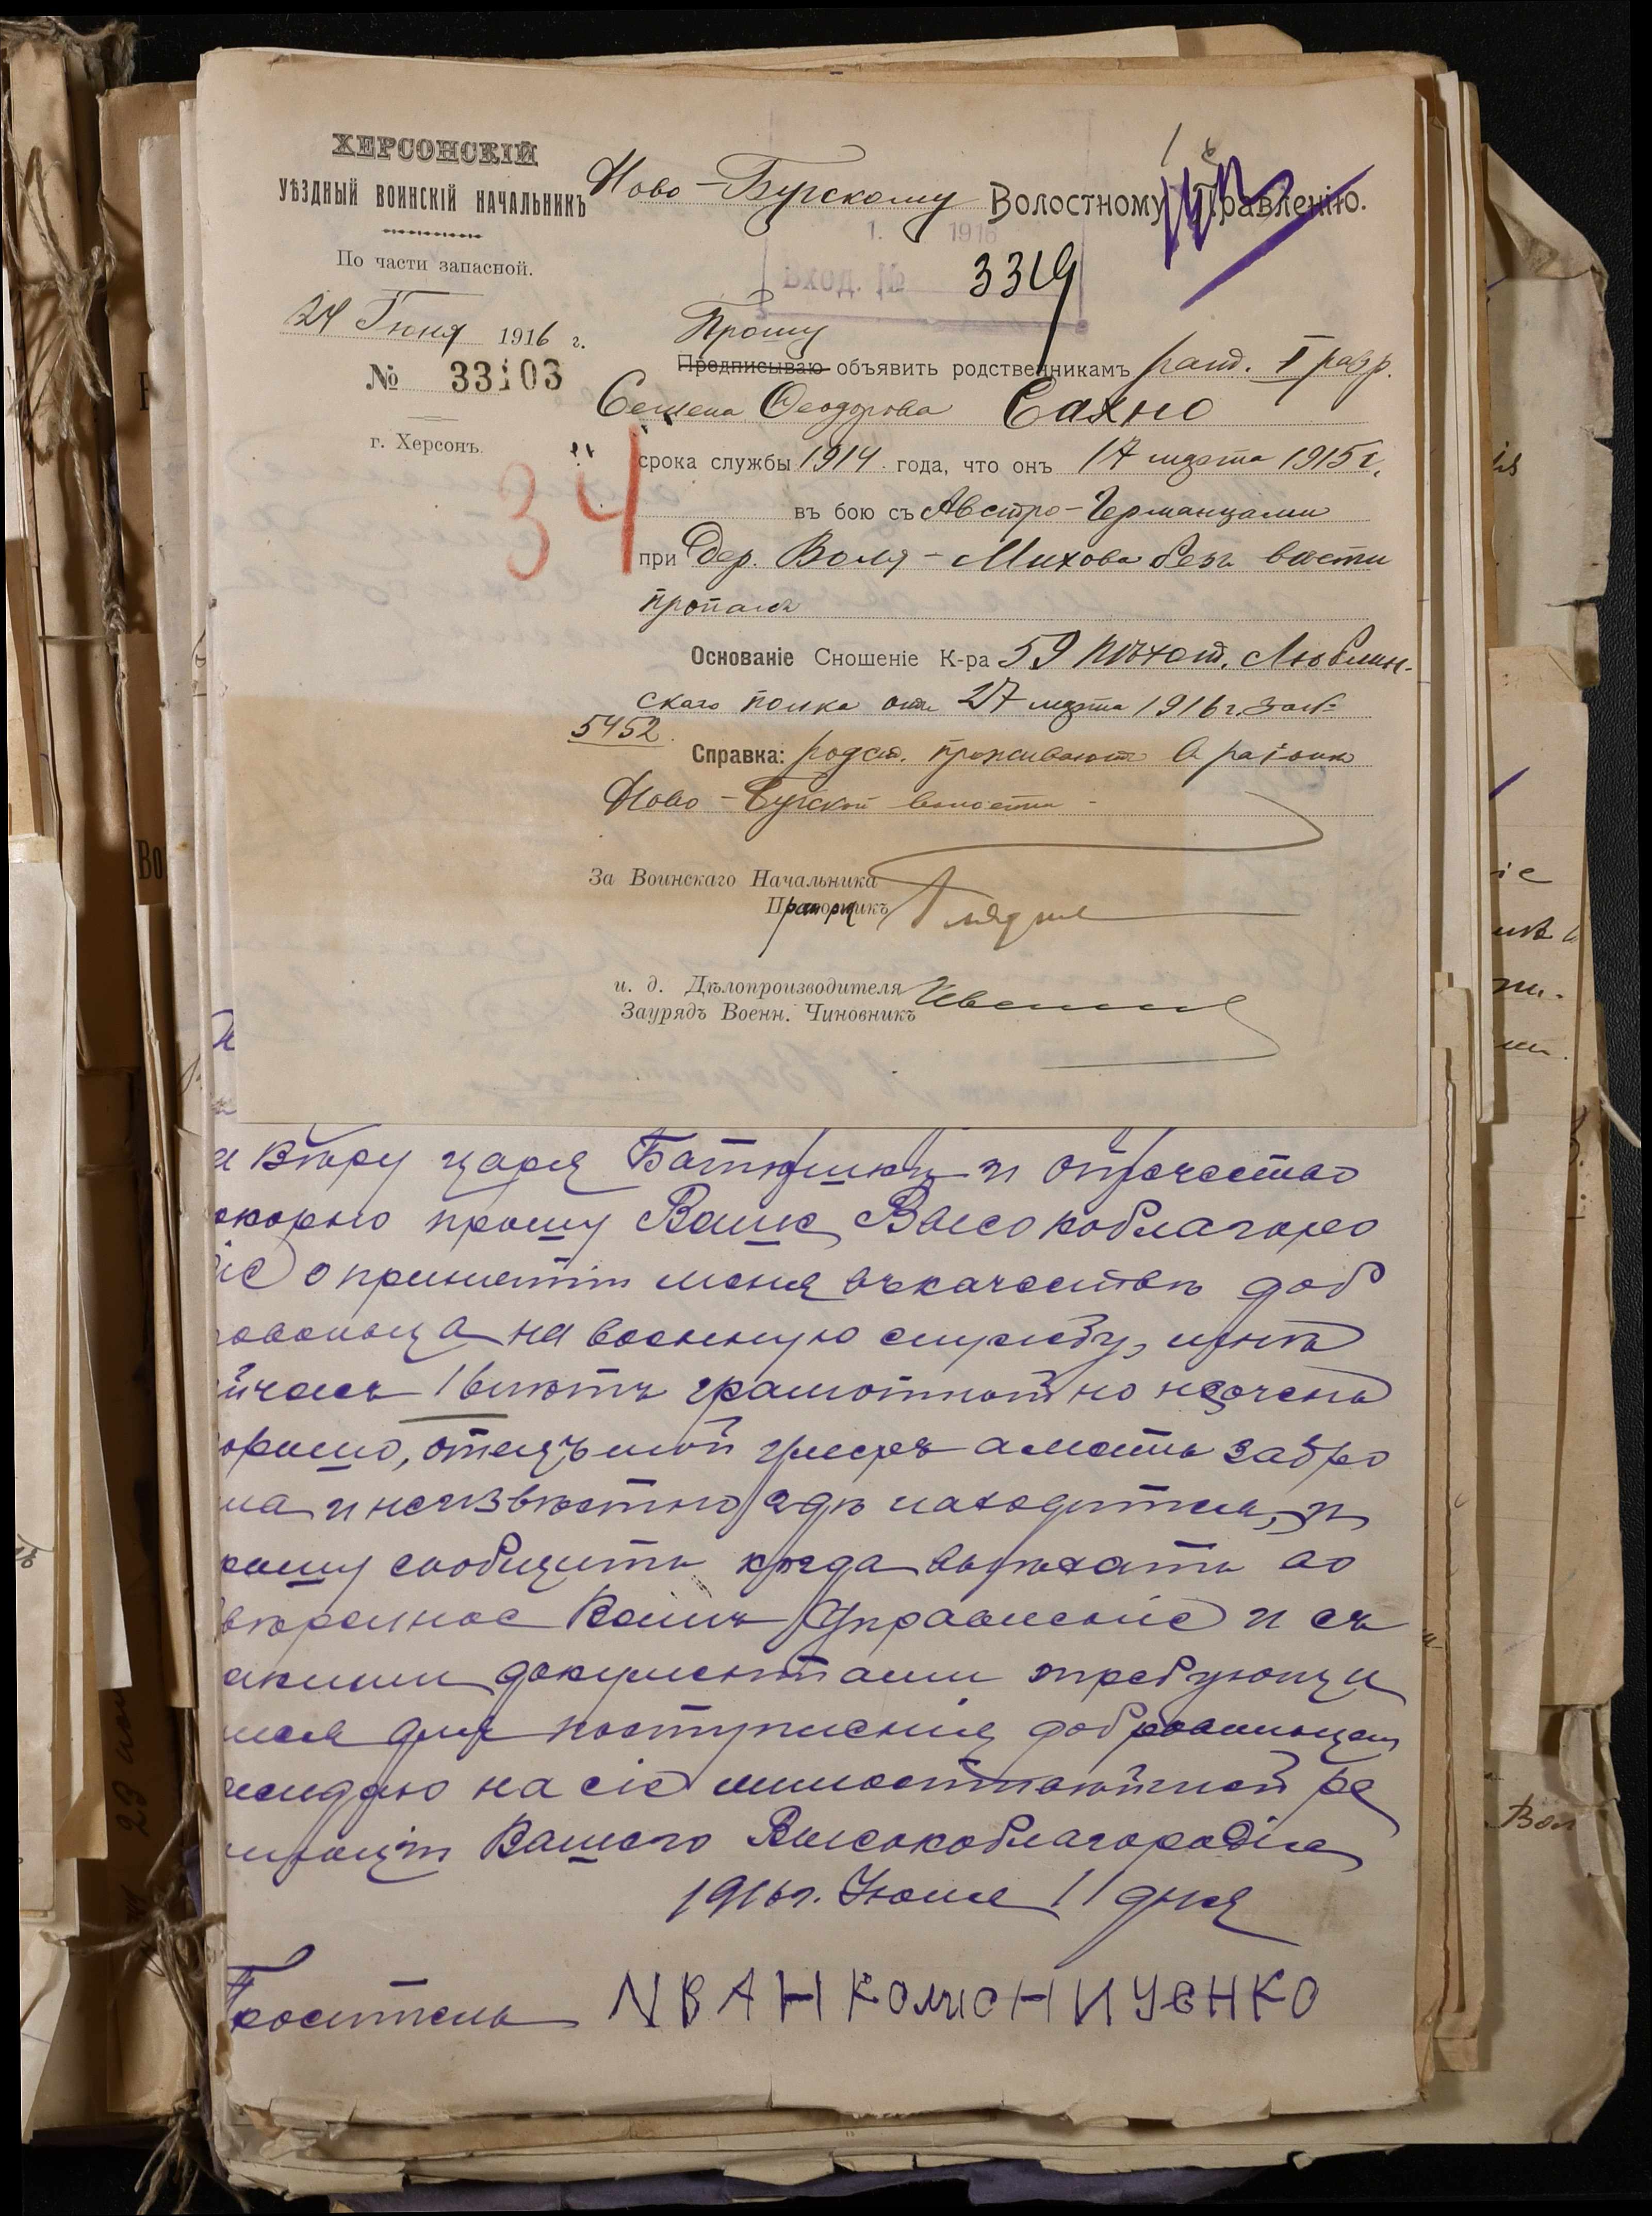 ХЕРСОНСКІЙ
УѢЗДНЫЙ ВОИНСКІЙ НАЧАЛЬНИКЪ
По части запасной.
24 Іюня 1916 г.
№ 33103
г. Херсонъ.
34
Ново-Бугскому Волостному Правленію.
1. 1916
Вход. № 3319
Прошу
Предписываю объявить родственникамъ ратн. I разр.
Семена Ѳеодорова Сахно
срока службы 1914 года, что онъ 17 марта 1915 г.
въ бою съ Австро-Германцами
при дер. Воля-Михова безъ вѣсти
пропалъ
Основаніе Сношеніе К-ра 59 пѣхот. Люблин-
скаго полка отъ 27 марта 1916 г. за №
5452
Справка: родст. проживаютъ в районѣ
Ново-Бугской волости
За Воинскаго Начальника
Прапорщикъ
и. д. Дѣлопроизводителя
Заурядъ Военн. Чиновникъ
а вѣру царя Батюшки и отечество
окорно прошу Ваше Высокоблагоро
іе о принетіи меня въ качествѣ доб
ровольца на военную службу, мнѣ
йчасъ 16 лѣтъ грамотной но неочень
орошо, отецъ мой умеръ а мать забро
ла и неизвѣстно гдѣ находится, и
рошу сообщить когда выѣхать во
вѣренное Вамъ Управленіе и съ
акими документами требующи
мися для поступленія добровольцем
ожидаю на сіе милостивѣйшей ре
золюціи Вашего Высокоблагородія
1916 г. Июля 11 дня
Проситель ИВАН КОЛИСНИЧЕНКО